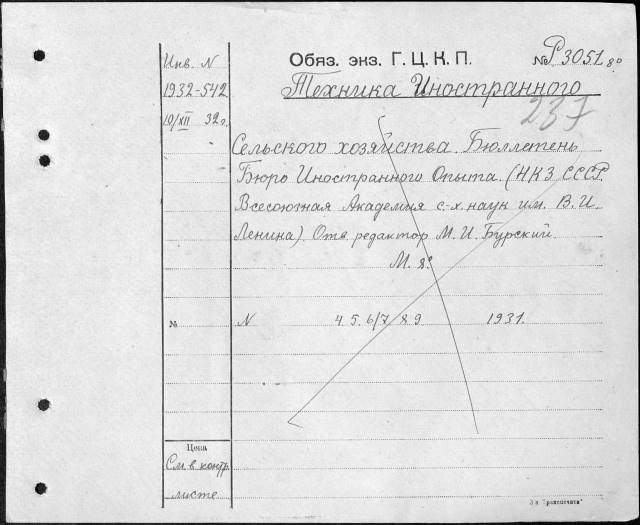 Инв. N
1932-542
10/XII 32 г.
Обяз. экз. Г. Ц. К. П. № Р3051 8°
Техника Иностранного
237
Сельского хозяйства. Бюллетень
Бюро Иностранного Опыта. (НКЗ СССР.
Всесоюзная Академия с-х. наук им. В. И.
Ленина) Отв. редактор М. И. Бурский.
М. 8°.
№ N 4 5. 6/7 8 9 1931.
Цена
См. в контр.
листе